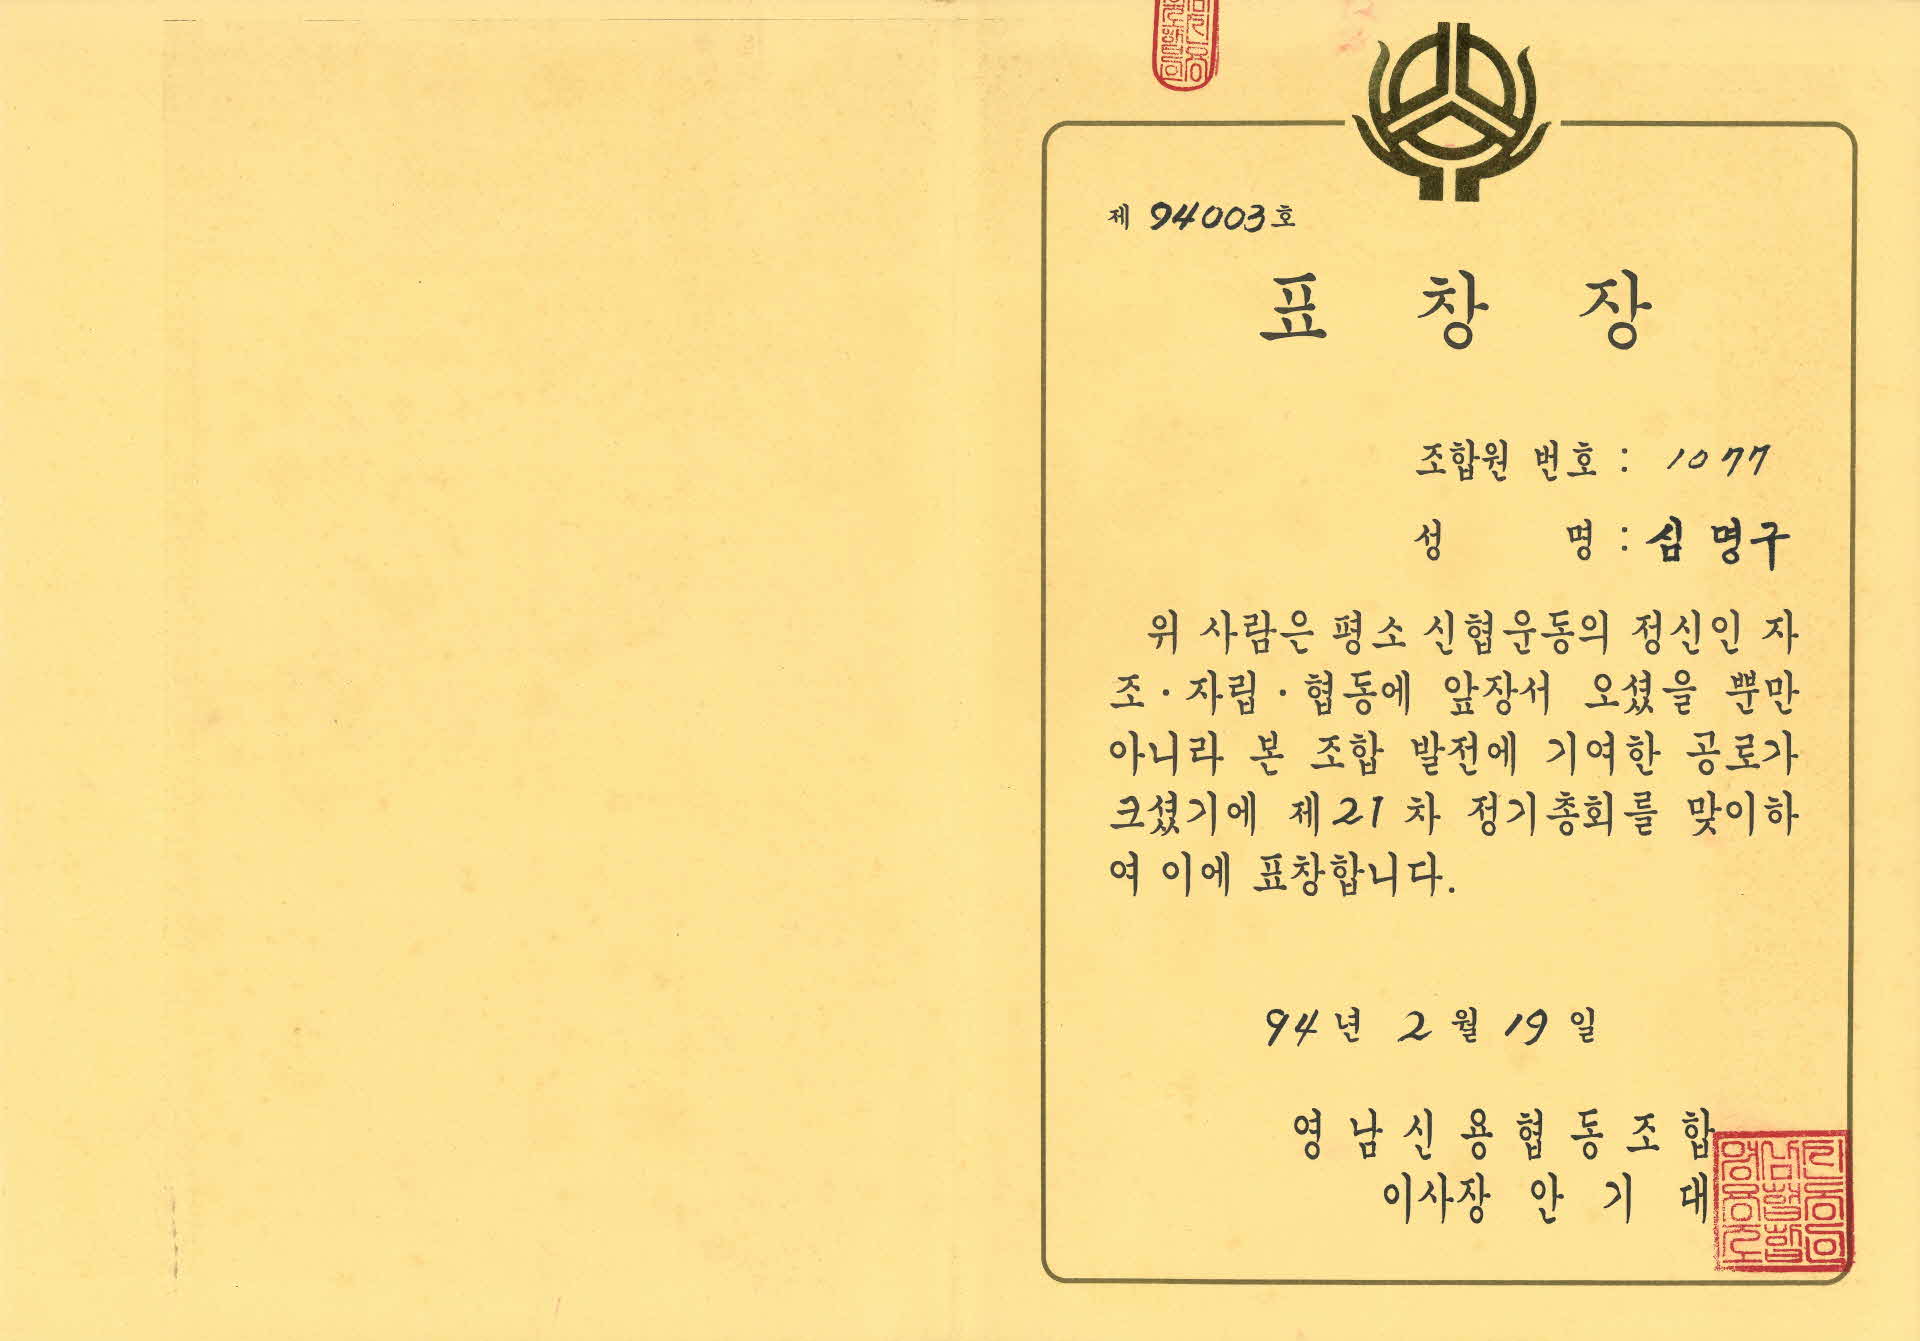 제 94003호
표 창 장
조합원 번호 : 1077
성 명 : 심명구
위 사람은 평소 신협운동의 정신인 자
조·자립·협동에 앞장서 오셨을 뿐만
아니라 본 조합 발전에 기여한 공로가
크셨기에 제21차 정기총회를 맞이하
여 이에 표창합니다.
94년 2월 19일
영남신용협동조합
이사장 안기대